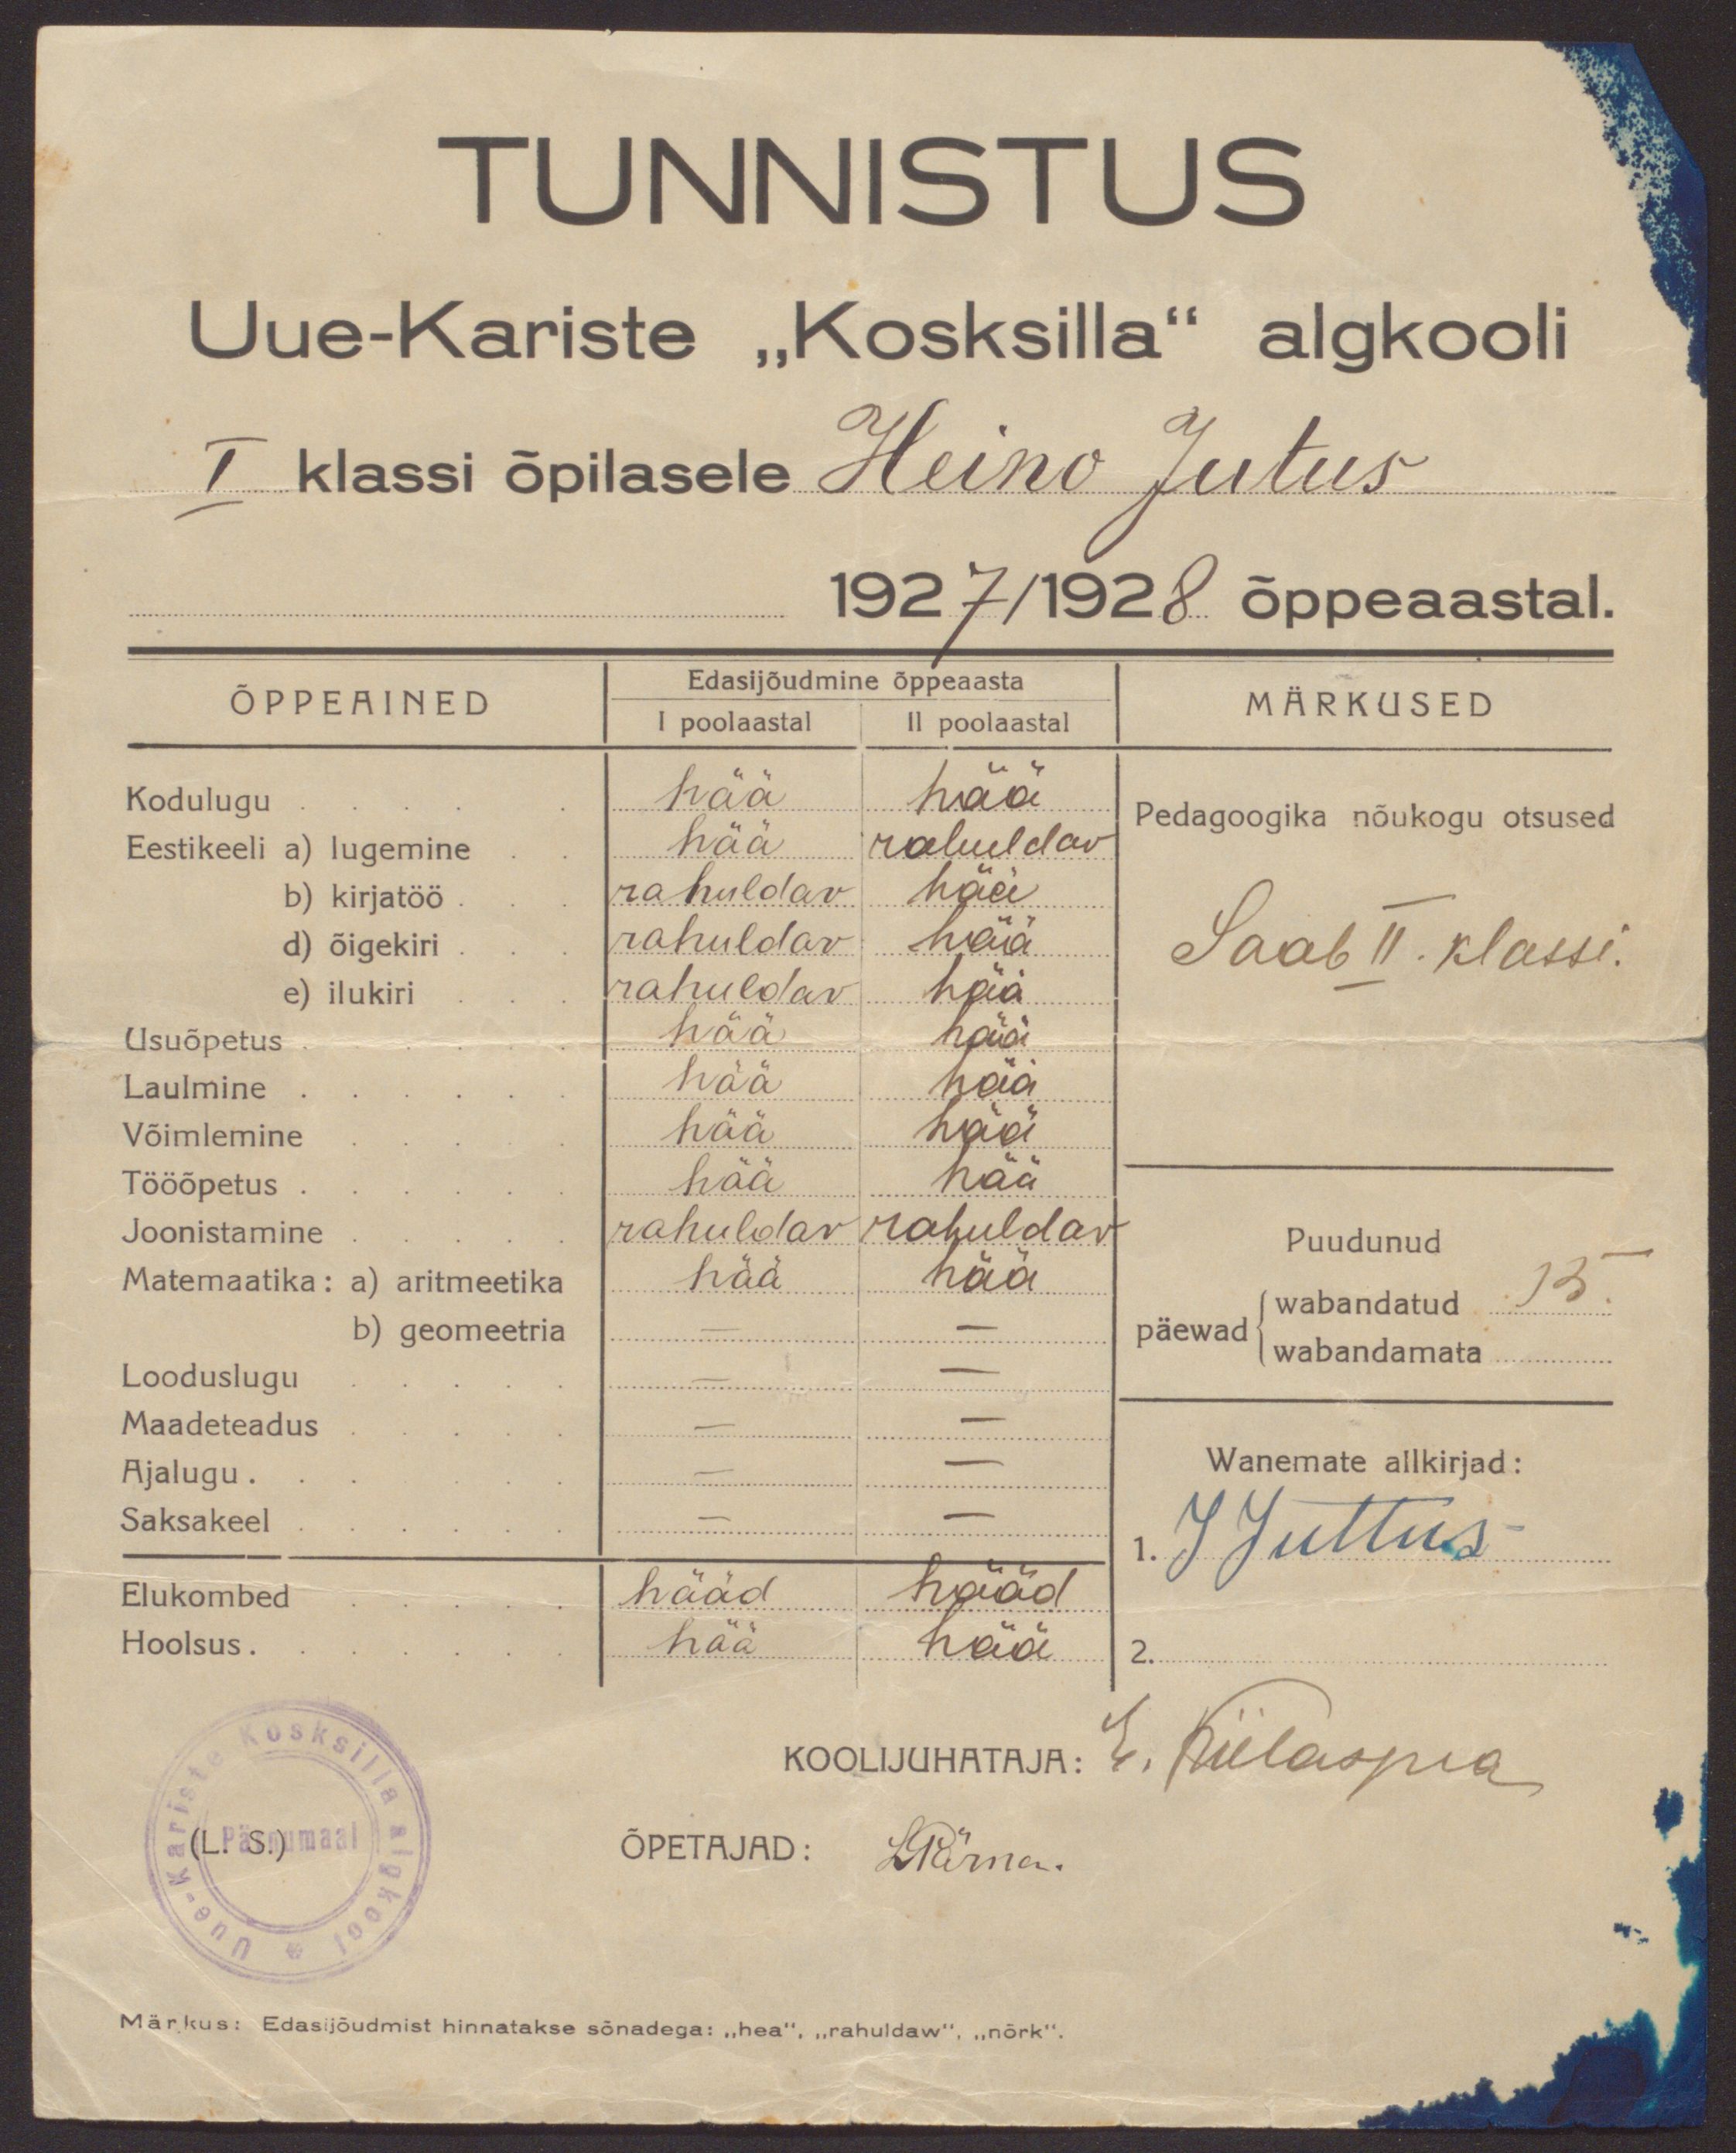 TUNNISTUS
Uue-Kariste „Kosksilla“ algkooli
I klassi õpilasele Heino Jutus
1927/1928 õppeaastal.
ÕPPEAINED Edasijõudmine õppeaasta MÄRKUSED
I poolaastal II poolaastal
Kodulugu hää hää
Pedagoogika nõukogu otsused
Eestikeeli a) lugemine hää rahuldav
b) kirjatöö rahuldav hää
d) õigekiri rahuldav hää
Saab II. klassi.
e) ilukiri rahuldav hää
Usuõpetus hää hää
Laulmine hää hää
Võimlemine hää hää
Tööõpetus hää hää
Joonistamine rahuldav rahuldav
Puudunud
Matemaatika: a) aritmeetika hää hää
päewad wabandatud 15.
b) geomeetria — —
wabandamata
Looduslugu — —
Maadeteadus — —
Ajalugu — —
Wanemate allkirjad:
Saksakeel — —
1. J Juttus
Elukombed hääd hääd
Hoolsus hää hää
2.
KOOLIJUHATAJA: E.
ÕPETAJAD: L Pärna.
Uue-Kariste Kosksilla algkool *
Pärnumaal
(L. S.)
Märkus: Edasijõudmist hinnatakse sõnadega: „hea“, „rahuldaw“, „nõrk“.